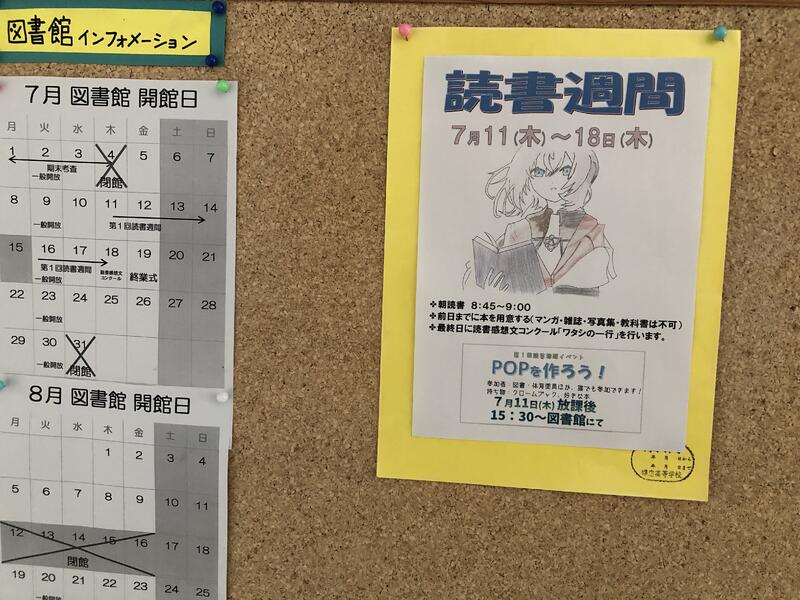 図書館 インフォメーション
7月 図書館 開館日
月 火 水 木 金 土 日
1 2 3 4 5 6 7
期末考査
一般開放
閉館
8 9 10 11 12 13 14
一般開放
第1回読書週間
15 16 17 18 19 20 21
第1回読書週間
読書感想文
コンクール
終業式
一般開放
22 23 24 25 26 27 28
一般開放
29 30 31
一般開放
閉館
8月 図書館 開館日
月 火 水 木 金 土 日
1 2 3 4
5 6 7 8 9 10 11
12 13 14 15 16 17 18
閉館
19 20 21 22 23 24 25
一般開放
読書週間
7月11(木)～18日(木)
❖朝読書 8:45～9:00
❖前日までに本を用意する(マンガ・雑誌・写真集・教科書は不可)
❖最終日に読書感想文コンクール「ワタシの一行」を行います。
第1回読書週間イベント
POPを作ろう！
参加者：図書・体育委員ほか、誰でも参加できます！
持ち物：クロームブック、好きな本
7月11日(木) 放課後
15：30～図書館にて
年 月 日から
年 月 日まで
高等学校